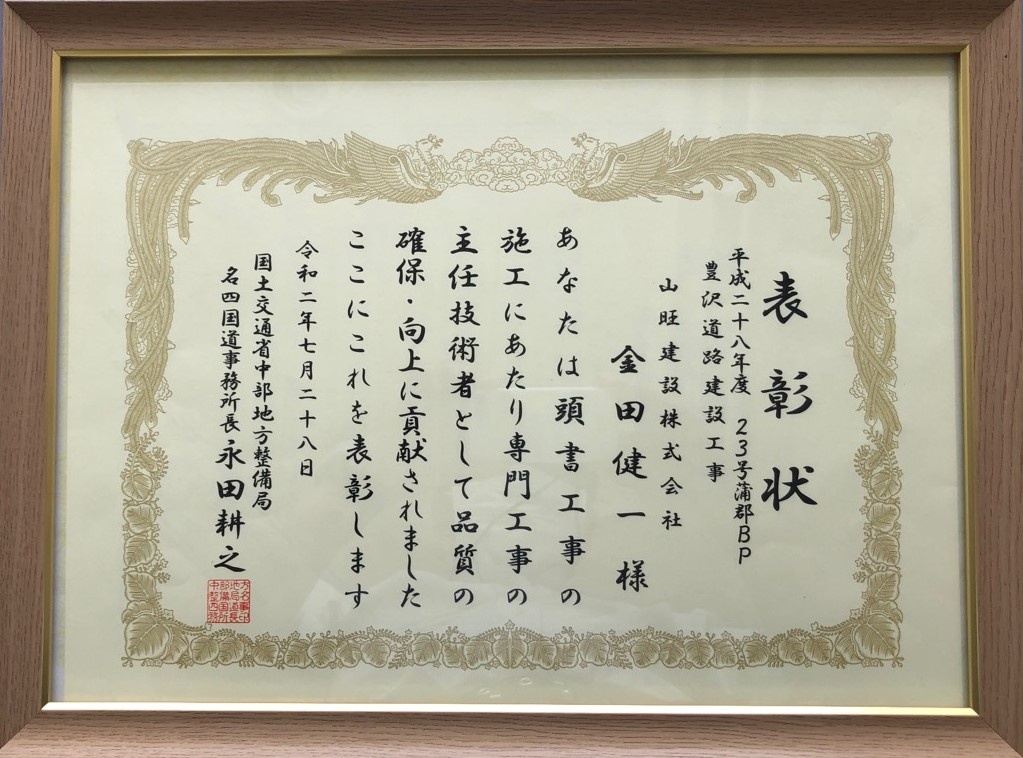 表彰状
平成二十八年度　23号蒲郡BP
豊沢道路建設工事
山旺建設株式会社
金田健一様
あなたは頭書工事の
施工にあたり専門工事の
主任技術者として品質の
確保・向上に貢献されました
ここにこれを表彰します
令和二年七月二十八日
国土交通省中部地方整備局
名四国道事務所長　永田耕之